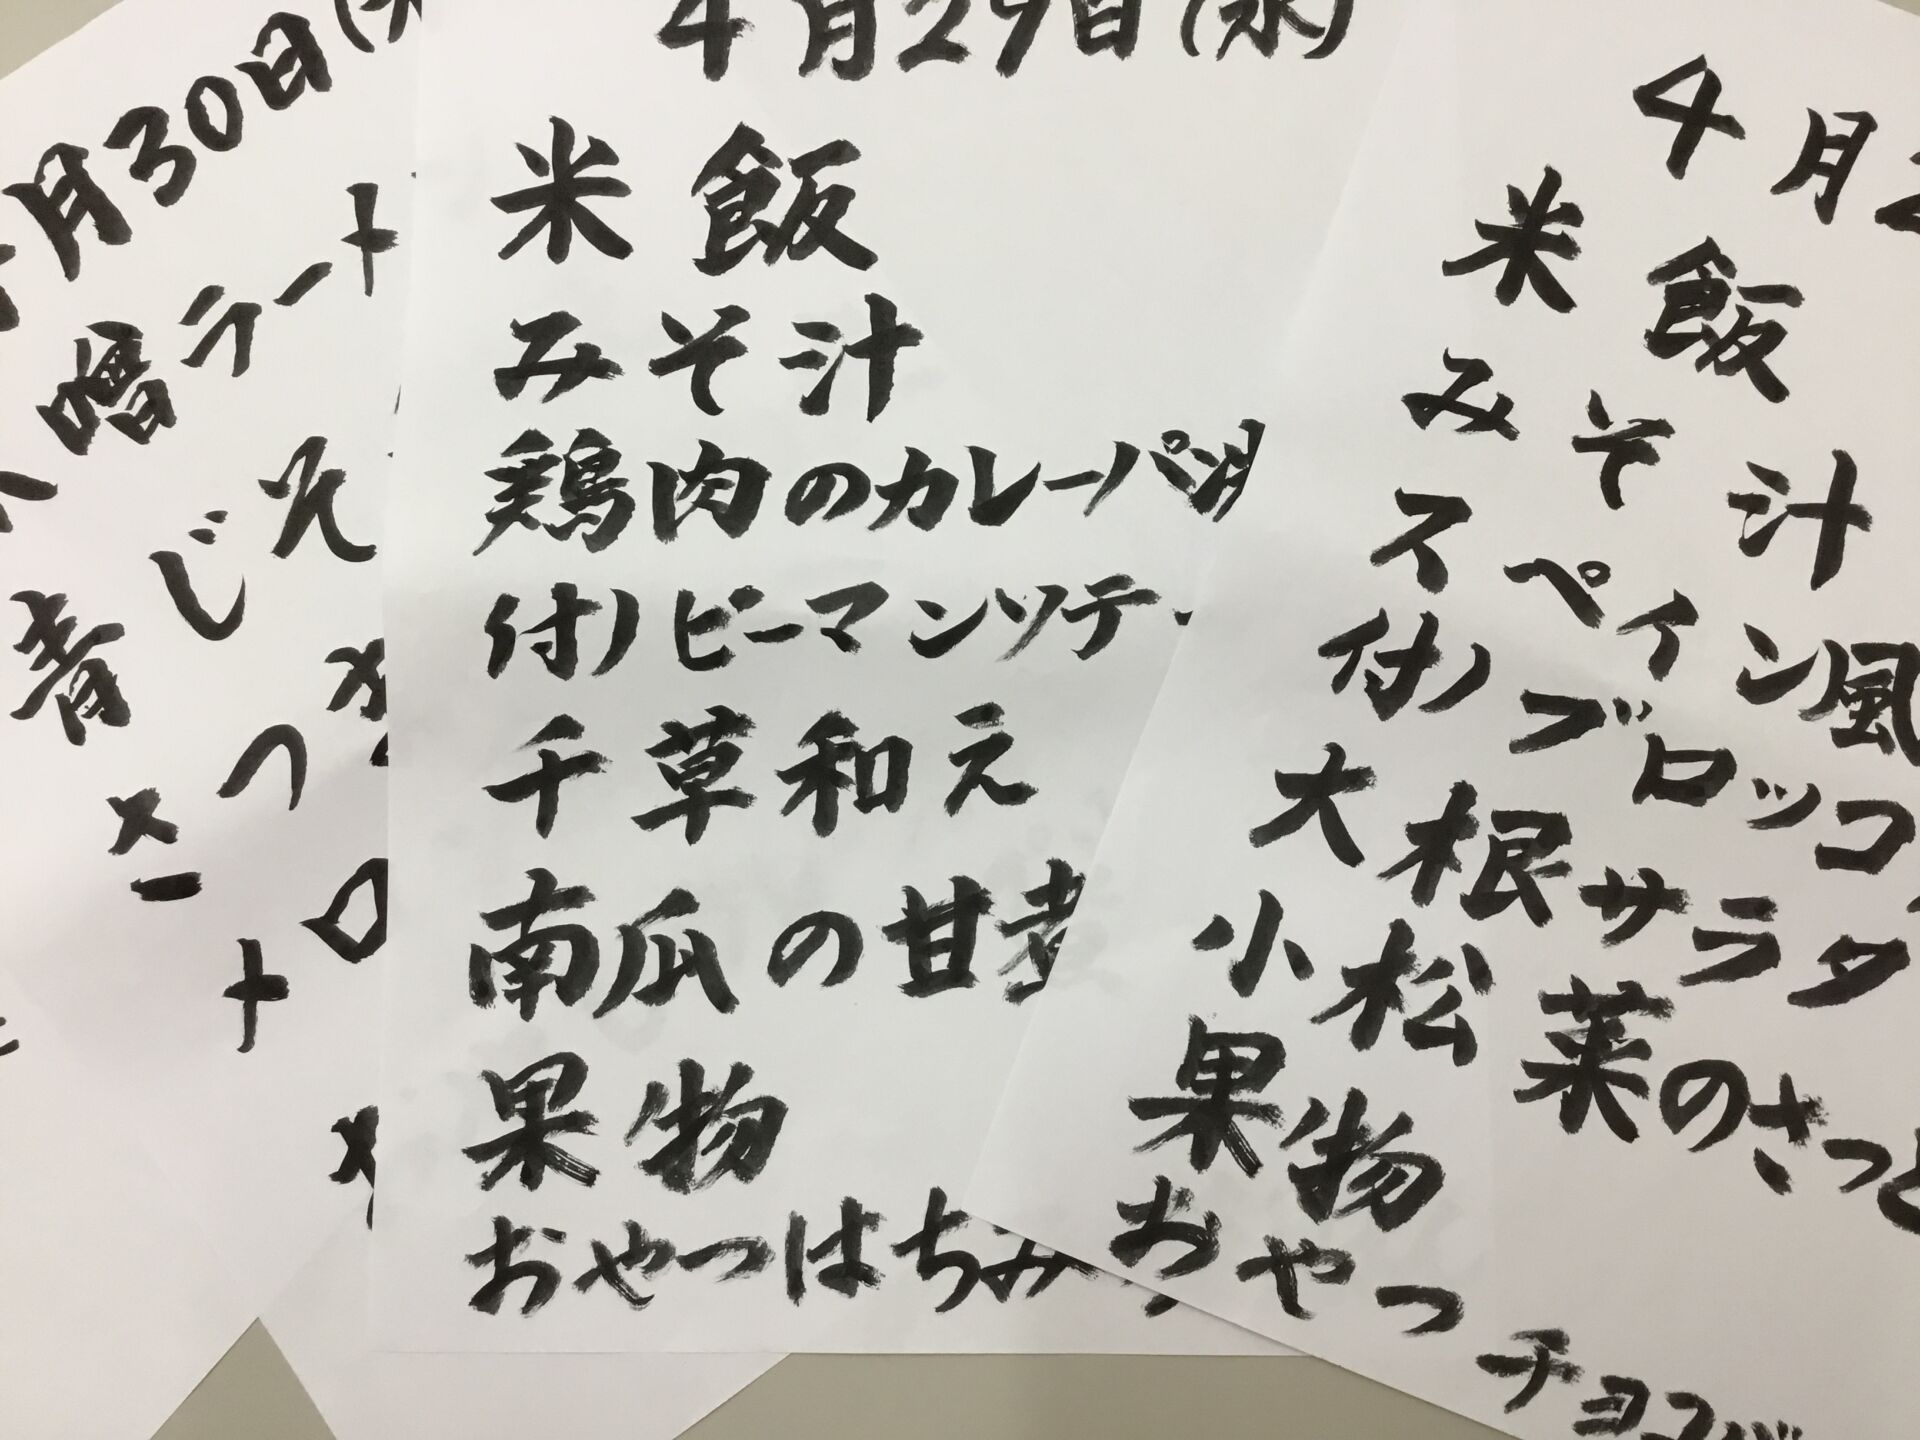 4月29日(水)
米飯
みそ汁
鶏肉のカレーパン
付)ピーマンソテー
千草和え
南瓜の甘煮
果物
おやつはちみ
4月2
米飯
みそ汁
スペイン風
付)ブロッコ
大根サラダ
小松菜のさっと
果物
おやつ
チョコバ
月30日(
噌ラーメ
青じそ
さつ